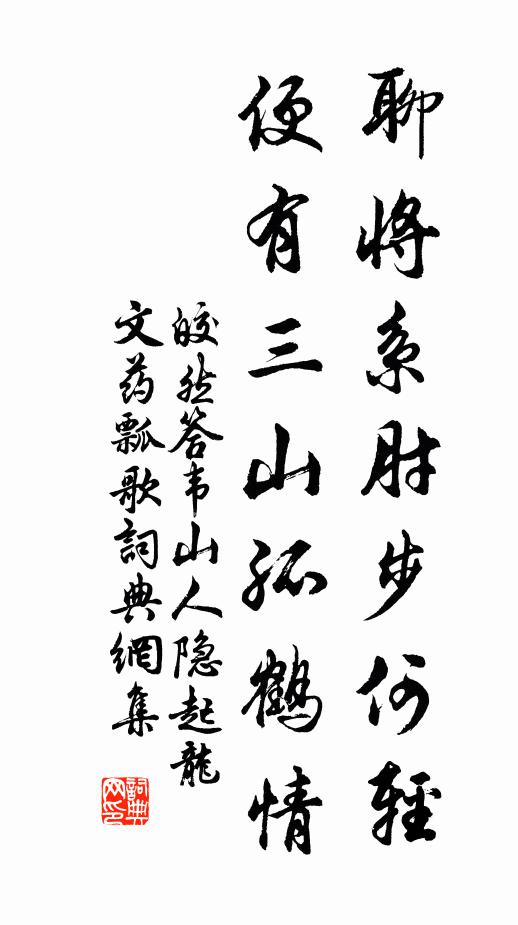 聊將系肘步何輕
便有三山孤鶴情
皎然答韦山人隐起龍
文药瓢歌詞典網集
詞典网印